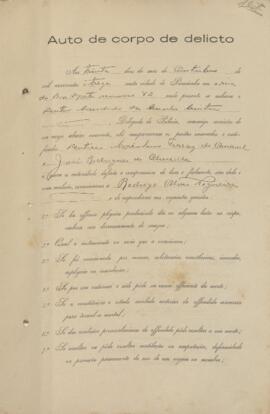 Auto de corpo de delicto
Aos trinta dias do mez de Outubro de
mil novecentos e treze nesta cidade de Piracicaba em a rua
da Boa Morte numero 82
Delegado de Policia, commigo escrivão de
seu cargo abaixo assignado, ahi compareceram os peritos nomeados e
doutores Coriolano Ferraz do Amaral
e José Rodrigues de Almeida
Rodrigo Alves Nogueira
e de responderem aos seguintes quesitos
1º Se ha offensa physica produzindo dôr ou alguma lesão no corpo,
embora sem derramamento de sangue.
2º Qual o instrumento ou meio que a occasionou;
3º Se foi occasionada por veneno, substancias anesthesicas, incendio,
asphyxia ou inundação;
4º Se por sua natureza e séde pôde ser causa efficiente da morte;
5º Se a constituição e estado morbido anterior do offendido concorrem
para tornal-a mortal;
6º Se das condições personalissimas do offendido póde resultar a sua morte;
7º Se resultou ou póde resultar mutilação ou amputação, deformidade
ou privação permanente do uso de um orgam ou membro;